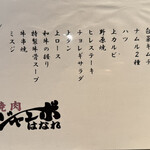 白菜キムチ
ナムル2種
ハツ
上カルビ
野原焼
ヒレステーキ
チョレギサラダ
上タン
上ロース
和牛の握り
特製牛骨スープ
牛串焼
ミスジ
焼肉
ジャンボ
はなれ